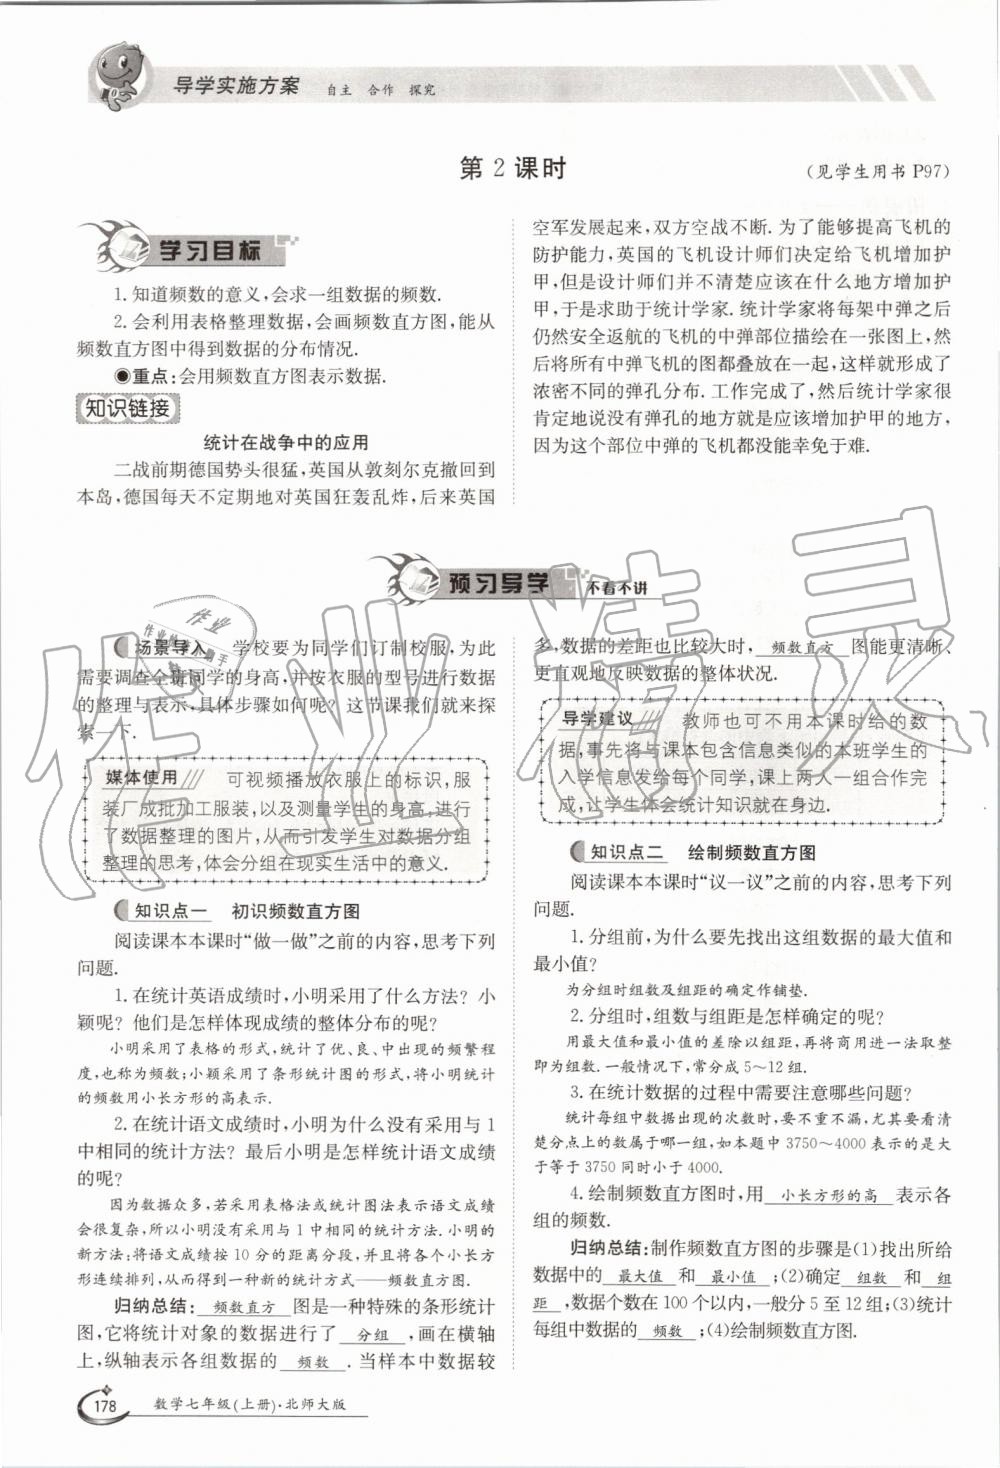 导学实施方案 自主 合作 探究
第 2 课时
(见学生用书 P97)
学习目标
1. 知道频数的意义,会求一组数据的频数.
2. 会利用表格整理数据,会画频数直方图,能从
频数直方图中得到数据的分布情况.
◉重点:会用频数直方图表示数据.
知识链接
统计在战争中的应用
二战前期德国势头很猛,英国从敦刻尔克撤回到
本岛,德国每天不定期地对英国狂轰乱炸,后来英国
空军发展起来,双方空战不断. 为了能够提高飞机的
防护能力,英国的飞机设计师们决定给飞机增加护
甲,但是设计师们并不清楚应该在什么地方增加护
甲,于是求助于统计学家. 统计学家将每架中弹之后
仍然安全返航的飞机的中弹部位描绘在一张图上,然
后将所有中弹飞机的图都叠放在一起,这样就形成了
浓密不同的弹孔分布. 工作完成了,然后统计学家很
肯定地说没有弹孔的地方就是应该增加护甲的地方,
因为这个部位中弹的飞机都没能幸免于难.
预习导学 不看不讲
场景导入 学校要为同学们订制校服,为此
需要调查全班同学的身高,并按衣服的型号进行数据
的整理与表示,具体步骤如何呢? 这节课我们就来探
索一下.
媒体使用 可视频播放衣服上的标识,服
装厂成批加工服装,以及测量学生的身高,进行
了数据整理的图片,从而引发学生对数据分组
整理的思考,体会分组在现实生活中的意义.
知识点一 初识频数直方图
阅读课本本课时“做一做”之前的内容,思考下列
问题.
1. 在统计英语成绩时,小明采用了什么方法? 小
颖呢? 他们是怎样体现成绩的整体分布的呢?
小明采用了表格的形式,统计了优、良、中出现的频繁程
度,也称为频数;小颖采用了条形统计图的形式,将小明统计
的频数用小长方形的高表示.
2. 在统计语文成绩时,小明为什么没有采用与 1
中相同的统计方法? 最后小明是怎样统计语文成绩
的呢?
因为数据众多,若采用表格法或统计图法表示语文成绩
会很复杂,所以小明没有采用与 1 中相同的统计方法. 小明的
新方法;将语文成绩按 10 分的距离分段,并且将各个小长方
形连续排列,从而得到一种新的统计方式——频数直方图.
归纳总结: 频数直方 图是一种特殊的条形统计
图,它将统计对象的数据进行了 分组 ,画在横轴
上,纵轴表示各组数据的 频数 . 当样本中数据较
多,数据的差距也比较大时, 频数直方 图能更清晰、
更直观地反映数据的整体状况.
导学建议 教师也可不用本课时给的数
据,事先将与课本包含信息类似的本班学生的
入学信息发给每个同学,课上两人一组合作完
成,让学生体会统计知识就在身边.
知识点二 绘制频数直方图
阅读课本本课时“议一议”之前的内容,思考下列
问题.
1. 分组前,为什么要先找出这组数据的最大值和
最小值?
为分组时组数及组距的确定作铺垫.
2. 分组时,组数与组距是怎样确定的呢?
用最大值和最小值的差除以组距,再将商用进一法取整
即为组数. 一般情况下,常分成 5~12 组.
3. 在统计数据的过程中需要注意哪些问题?
统计每组中数据出现的次数时,要不重不漏,尤其要看清
楚分点上的数属于哪一组,如本题中 3750~4000 表示的是大
于等于 3750 同时小于 4000.
4. 绘制频数直方图时,用 小长方形的高 表示各
组的频数.
归纳总结:制作频数直方图的步骤是(1)找出所给
数据中的 最大值 和 最小值 ;(2)确定 组数 和 组
距 ,数据个数在 100 个以内,一般分 5 至 12 组;(3)统计
每组中数据的 频数 ;(4)绘制频数直方图.
178 数学七年级(上册)·北师大版
作业精灵